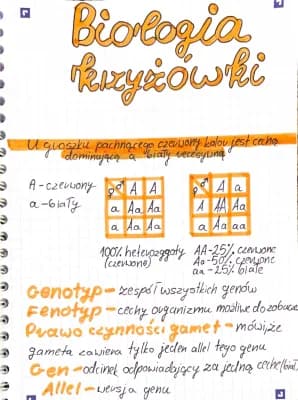 Biologia
krzyżówki
U groszku pachnącego czerwony kolor jest cechą
dominującą a biały recesywną
A - czerwony
a - biały
♀♂ A A
a Aa Aa
a Aa Aa
♀♂ A a
A AA Aa
a Aa aa
100% heterozygoty
(czerwone)
AA - 25% czerwone
Aa - 50% czerwone
aa - 25% białe
Genotyp - zespół wszystkich genów
Fenotyp - cechy organizmu możliwe do zobacze
Prawo czynności gamet - mówi, że
gameta zawiera tylko jeden allel tego genu
Gen - odcinek odpowiadający za jedną cechę (biał
Allel - wersja genu